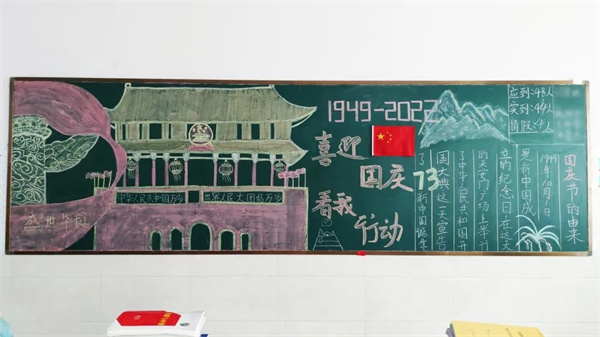 盛世华诞
中华人民共和国万岁
世界人民大团结万岁
1949-2022
喜迎
国庆
73
看我
行动
应到:48人
实到:44人
国庆节的由来
1949年10月1日
是新中国成
立的纪念日在这
的天安门广场上举行
了中华人民共和国开
国大典这一天宣告
了新中国诞生